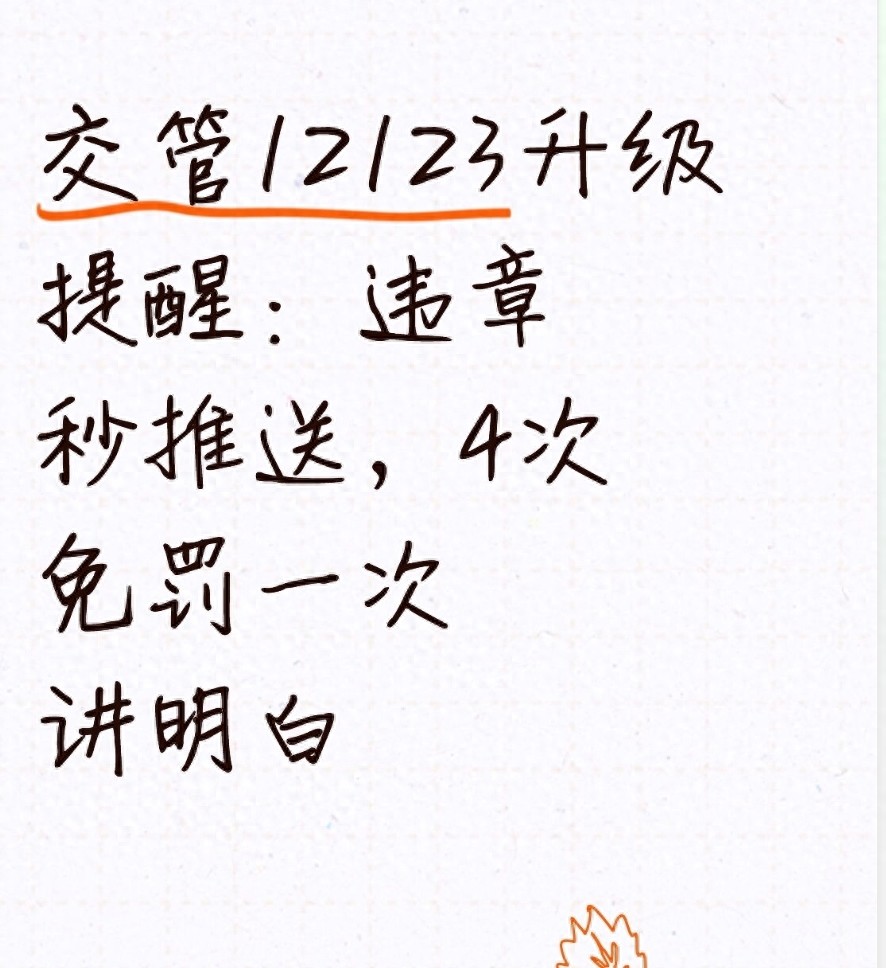 交管12123升级
提醒：违章
秒推送，4次
免罚一次
讲明白